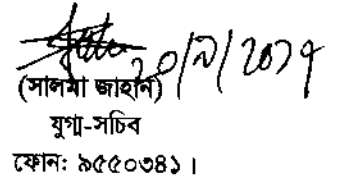 ২০/৯/২০১৭
(সালমা জাহান)
যুগ্ম-সচিব
ফোনঃ ৯৫৫০৩৪১।